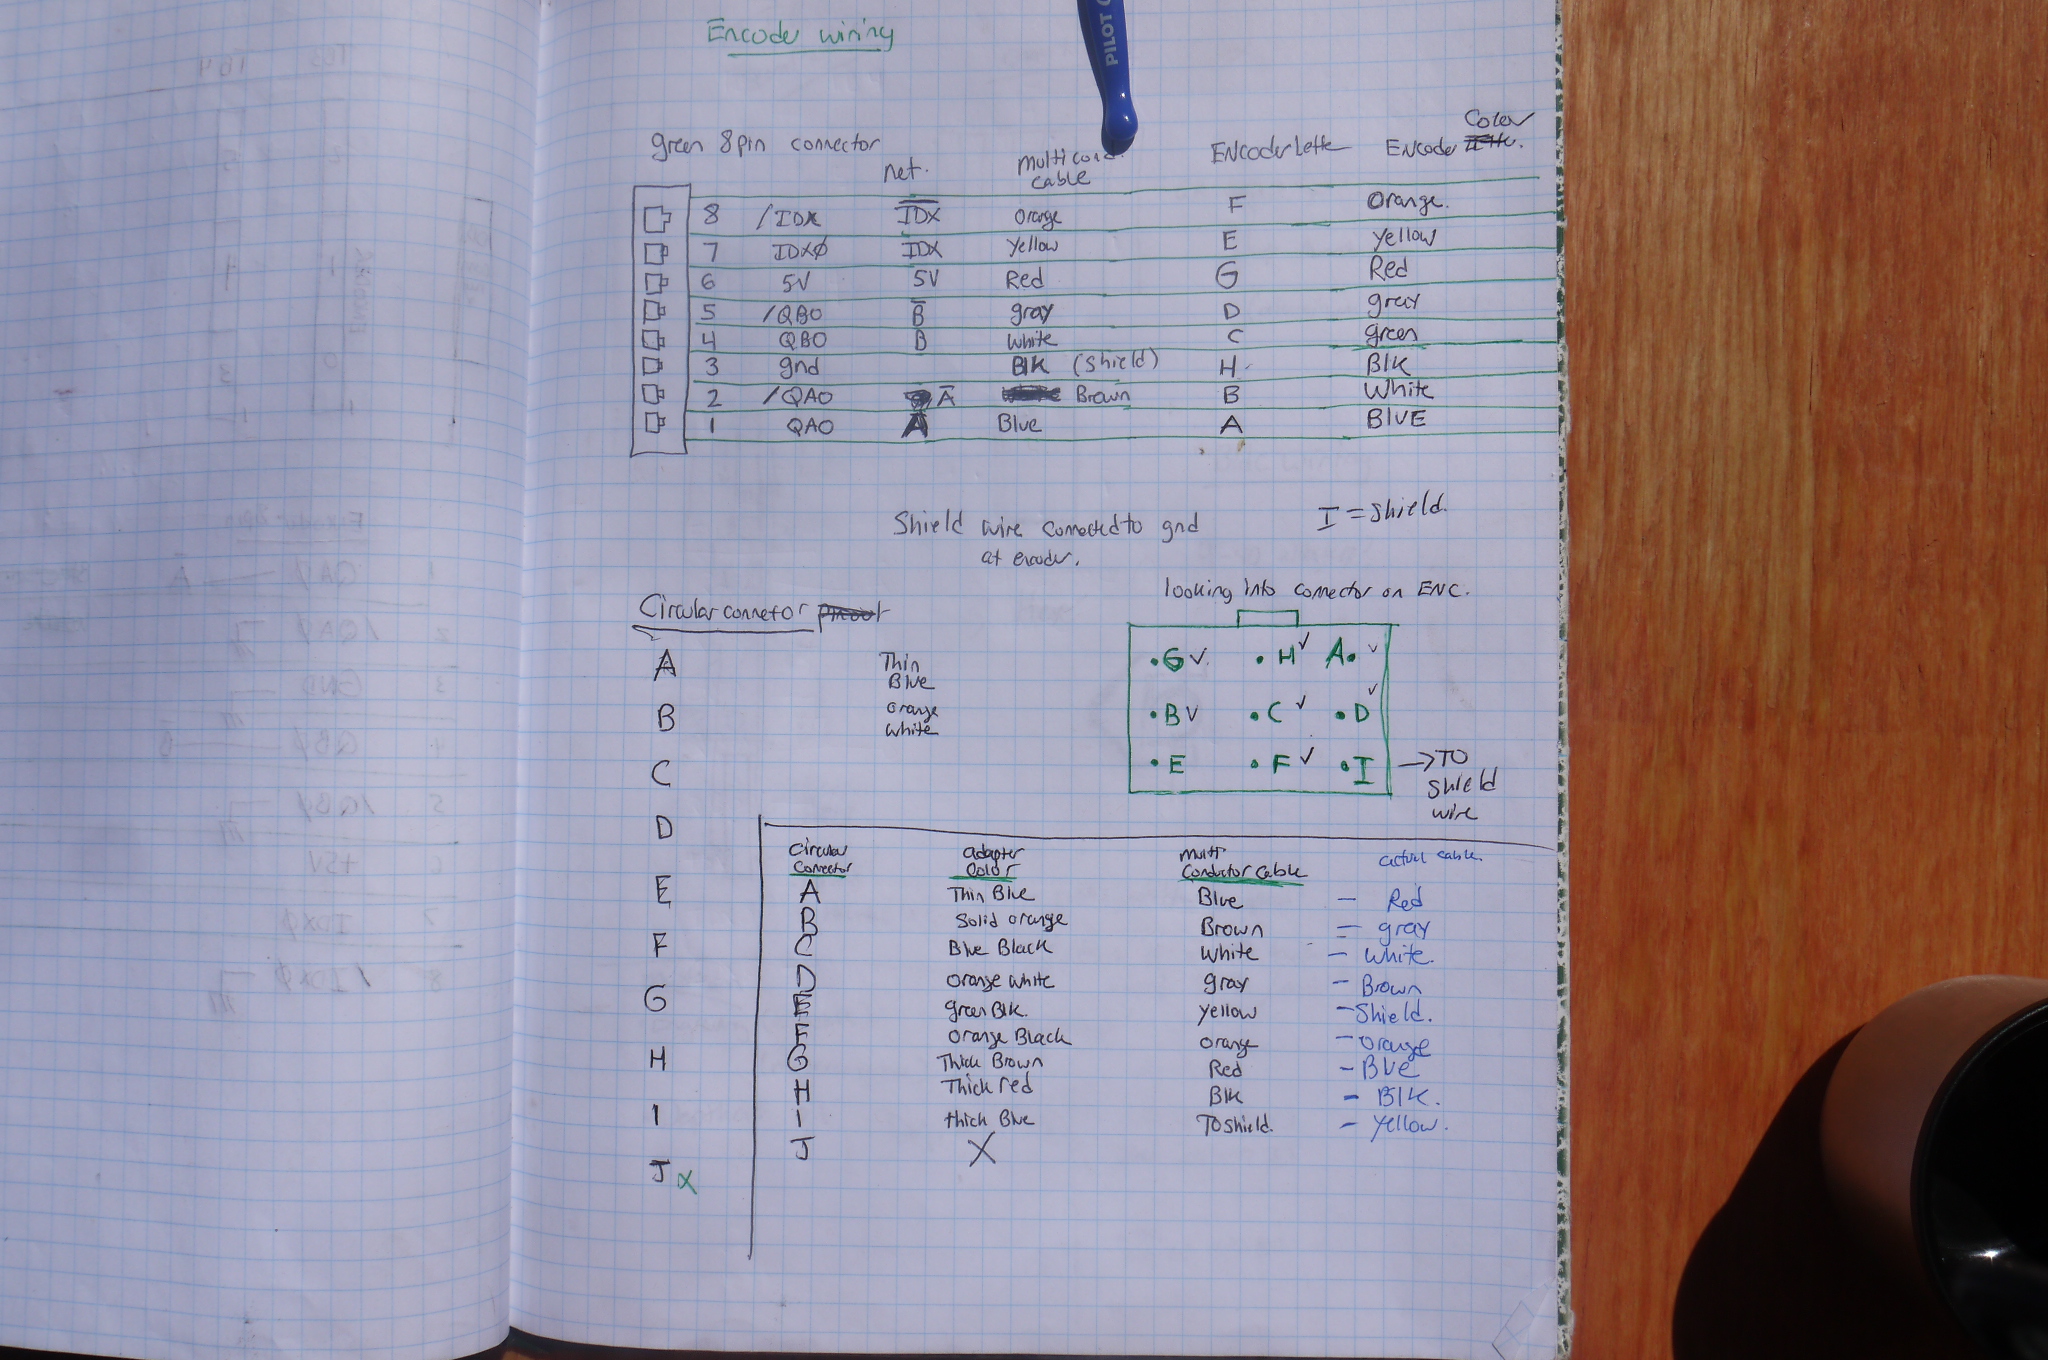 Encoder wiring
PILOT
green 8pin connector
net.
multi cond.
cable
ENCoder Lette
ENCoder Color
8 /IDX IDX Orange F Orange.
7 IDXØ IDX Yellow E Yellow
6 5V 5V Red G Red
5 /QBO B gray D gray
4 QBO B white C green
3 gnd Blk (Shield) H Blk
2 /QAO A Brown B White
1 QAO A Blue A BlUE
Shield wire connected to gnd
at encoder.
I = Shield.
looking into connector on ENC.
Circular connetor pinout
A Thin
Blue
B orange
white
C
D
E
F
G
H
I
J X
G H A
B C D
E F I
→ TO
Shield
wire
Circular
Connector
adapter
Color
multi
Conductor Cable
actual cable.
A Thin Blue Blue - Red
B Solid orange Brown - gray
C Blue Black white - white.
D orange white gray - Brown
E green Blk. yellow - Shield.
F orange Black orange - orange
G Thick Brown Red - Blue
H Thick red Blk - Blk.
I thick Blue TO shield. - yellow.
J X